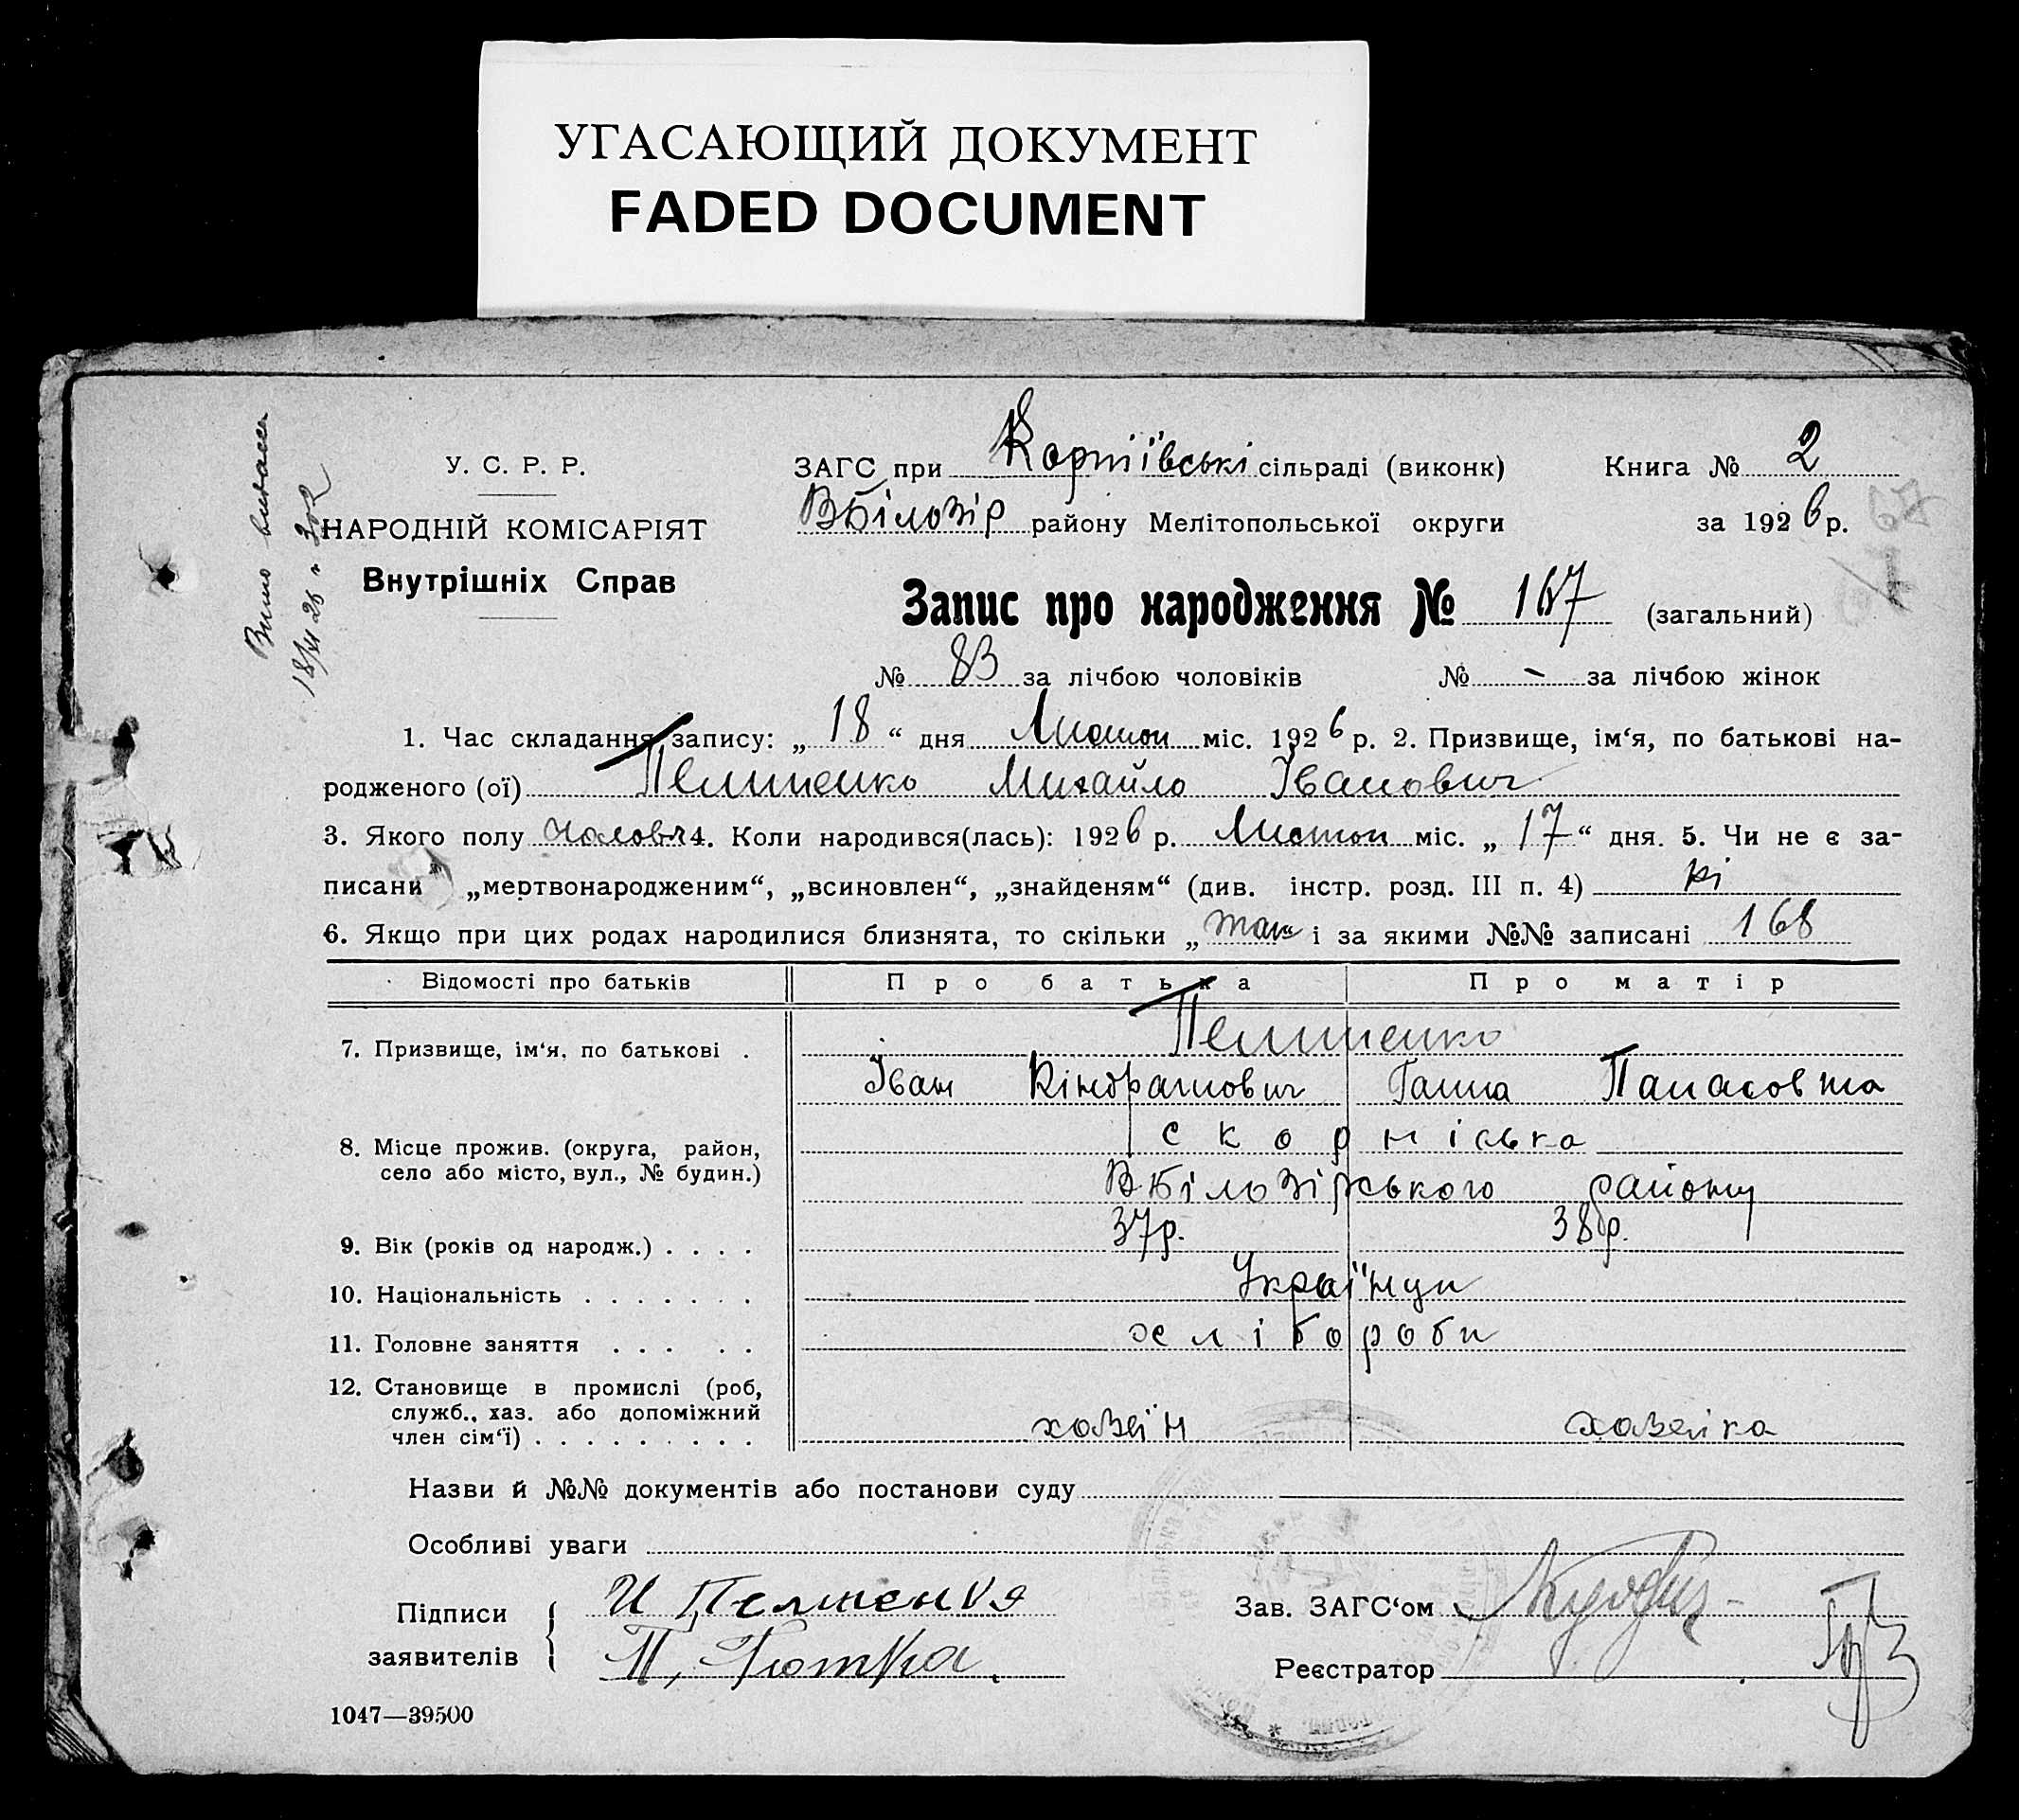 УГАСАЮЩИЙ ДОКУМЕНТ
FADED DOCUMENT
У. С. Р. Р.
НАРОДНІЙ КОМІСАРІЯТ
Внутрішніх Справ
ЗАГС при сільраді (виконк) Книга № 2
ВБілозір району Мелітопольської округи за 1926 р.
Запис про народження № 167 (загальний)
№ 83 за лічбою чоловіків № - за лічбою жінок
1. Час складання запису: „ 18 “ дня Листоп міс. 1926 р. 2. Призвище, ім‘я, по батькові на-
родженого (ої) Михайло Іванович
3. Якого полу чоловіч 4. Коли народився(лась): 1926 р. Листоп міс. „ 17 “ дня. 5. Чи не є за-
писани „мертвонародженим“, „всиновлен“, „знайденям“ (див. інстр. розд. III п. 4) Ні
6. Якщо при цих родах народилися близнята, то скільки „ і за якими №№ записані 168
Відомості про батьків Про батька Про матір
7. Призвище, ім‘я, по батькові .
Іван Кіндратович Ганна Панасовна
8. Місце прожив. (округа, район,
село або місто, вул., № будин.)
ВБілозірського району
9. Вік (років од народж.) . . . . 37р. 38р.
10. Національність . . . . . . . Українци
11. Головне заняття . . . . . хлібороби
12. Становище в промислі (роб,
служб., хаз. або допоміжний
член сім‘ї) . . . . . . . . . хозеїн хозейка
Назви й №№ документів або постанови суду
Особливі уваги
Підписи
заявителів
Зав. ЗАГС‘ом
Реєстратор
1047—39500